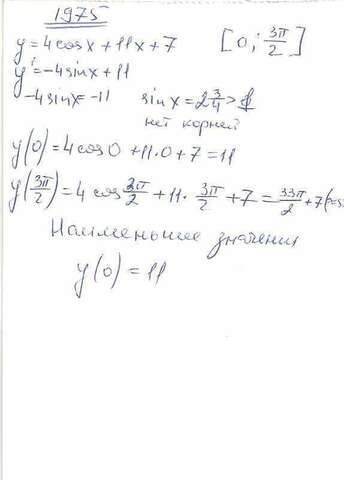 1975
y = 4cosx + 11x + 7 [0; 3π/2]
y' = -4sinx + 11
-4sinx = -11 sinx = 2 3/4 > 1
нет корней
y(0) = 4cos0 + 11·0 + 7 = 11
y(3π/2) = 4cos 3π/2 + 11· 3π/2 + 7 = 33π/2 + 7
Наименьшее значения
y(0) = 11